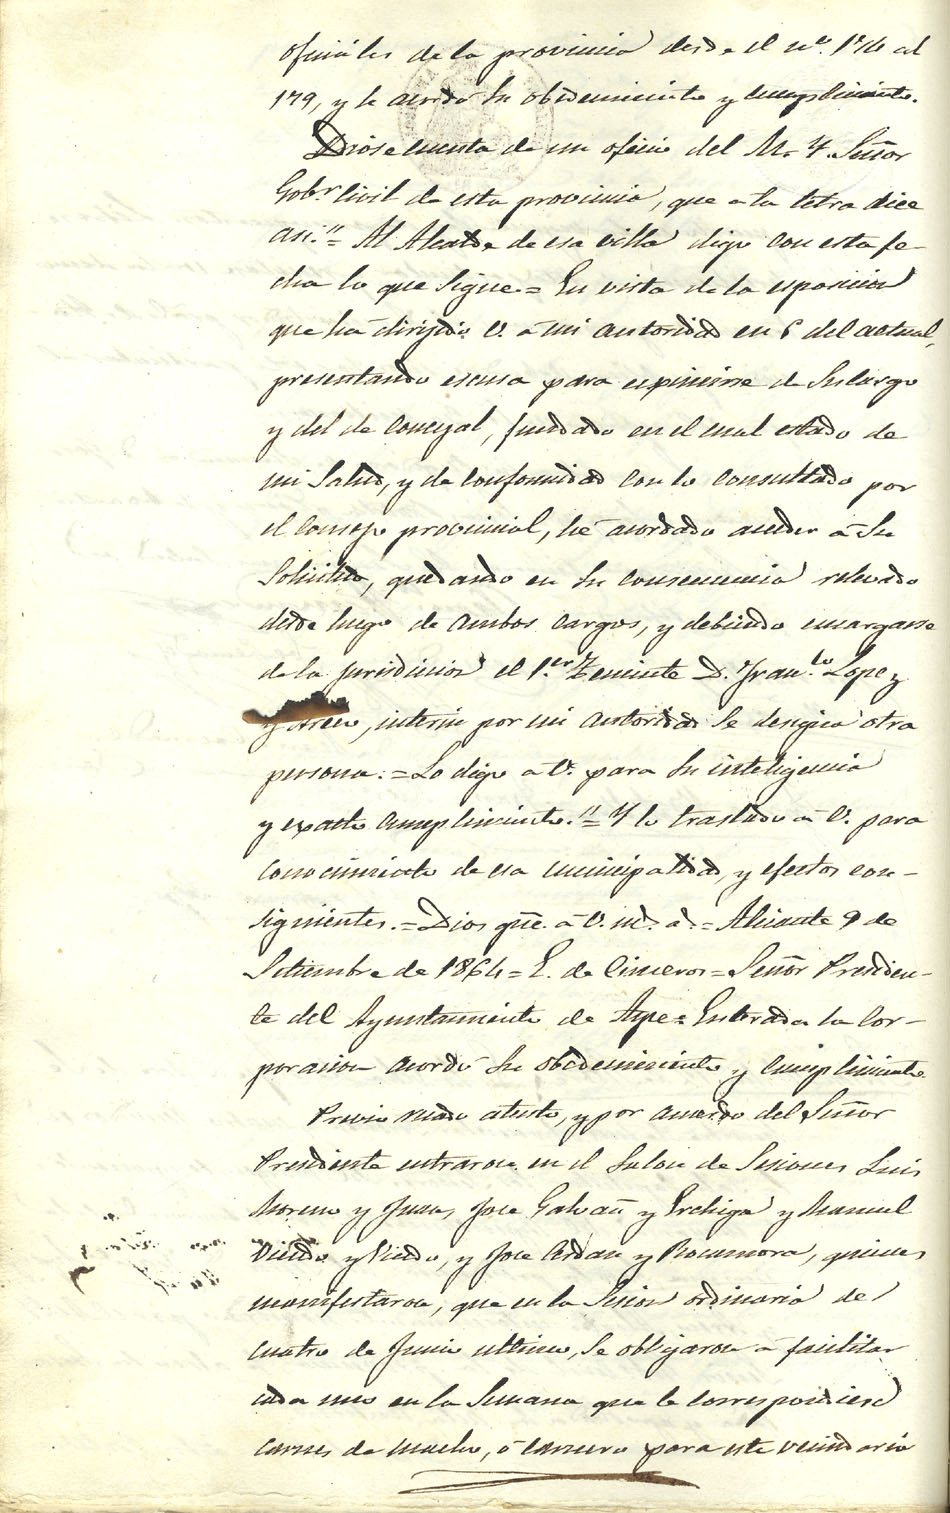 oficiales de la provincia desde el nº. 176 al
179, y se acordó su obedecimiento y cumplimiento.
Diose cuenta de un oficio del M. Y. Señor
Gobr. Civil de esta provincia, que a la letra dice
asi."= Al Alcalde de esa villa digo con esta fe-
cha lo que sigue.= En vista de la esposicion
que há dirijido V. á mi autoridad en 6 del actual,
presentando escusa para escimirse de su cargo
y del de concejal, fundado en el mal estado de
su salud, y de conformidad con lo consultado por
el Consejo provincial, hé acordado acceder á su
solicitud, quedando en su consecuencia relevado
desde luego de ambos cargos, y debiendo encargarse
de la jurisdiccion el 1.er Teniente D. Fran.co Lopez
y , interin por mi autoridad se designa otra
persona.=Lo digo á V. para su inteligencia
y exacto cumplimiento."= Y lo traslado á V. para
conocimiento de esa municipalidad, y efectos con-
siguientes.=Dios gue. á V. m.s a.s=Alicante 9 de
Setiembre de 1864=E. de Cisneros=Señor Presiden-
te del Ayuntamiento de Aspe=Enterada la Cor-
poracion acordó su obedecimiento y cumplimiento.
Previo recado atento, y por acuerdo del Señor
Presidente entraron en el Salon de Sesiones Luis
Moreno y Juan, Jose Galvañ y Erchiga y Manuel
Viedo y Viedo, y Jose Cerdan y Rocamora, quienes
manifestaron, que en la Sesion ordinaria de
cuatro de Junio ultimo, se obligaron á facilitar
cada uno en la Semana que le correspondiese
carnes de macho, ó carnero para este vecindario